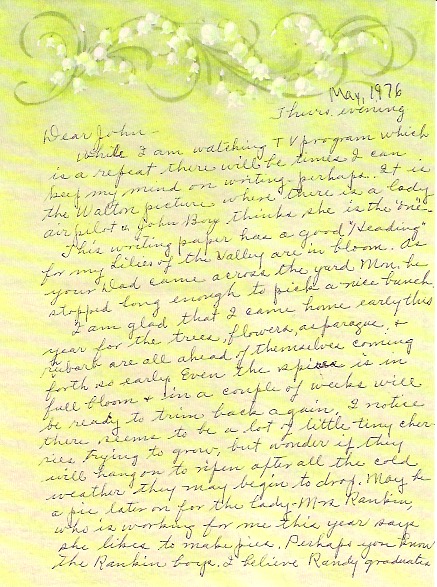 May, 1976
Thurs. evening
Dear John -
While I am watching TV program which
is a repeat there will be times I can
keep my mind on writing - perhaps. It is
the Walton picture where there is a lady
air pilot & John Boy thinks she is the "one"-
This writing paper has a good "Heading"
for my lilies of the Valley are in bloom. As
your Dad came across the yard Mon. he
stopped long enough to pick a nice bunch.
I am glad that I came home early this
year for the trees, flowers, asparagus, &
rubarb are all ahead of themselves coming
forth so early. Even the spirea is in
full bloom & in a couple of weeks will
be ready to trim back again. I notice
there seems to be a lot of little tiny cher-
ries trying to grow, but wonder if they
will hang on to ripen after all the cold
weather they may begin to drop. May be
a pie later on for the lady - Mrs Rankin,
who is working for me this year says
she likes to make pies. Perhaps you know
the Rankin boys. I believe Randy graduates